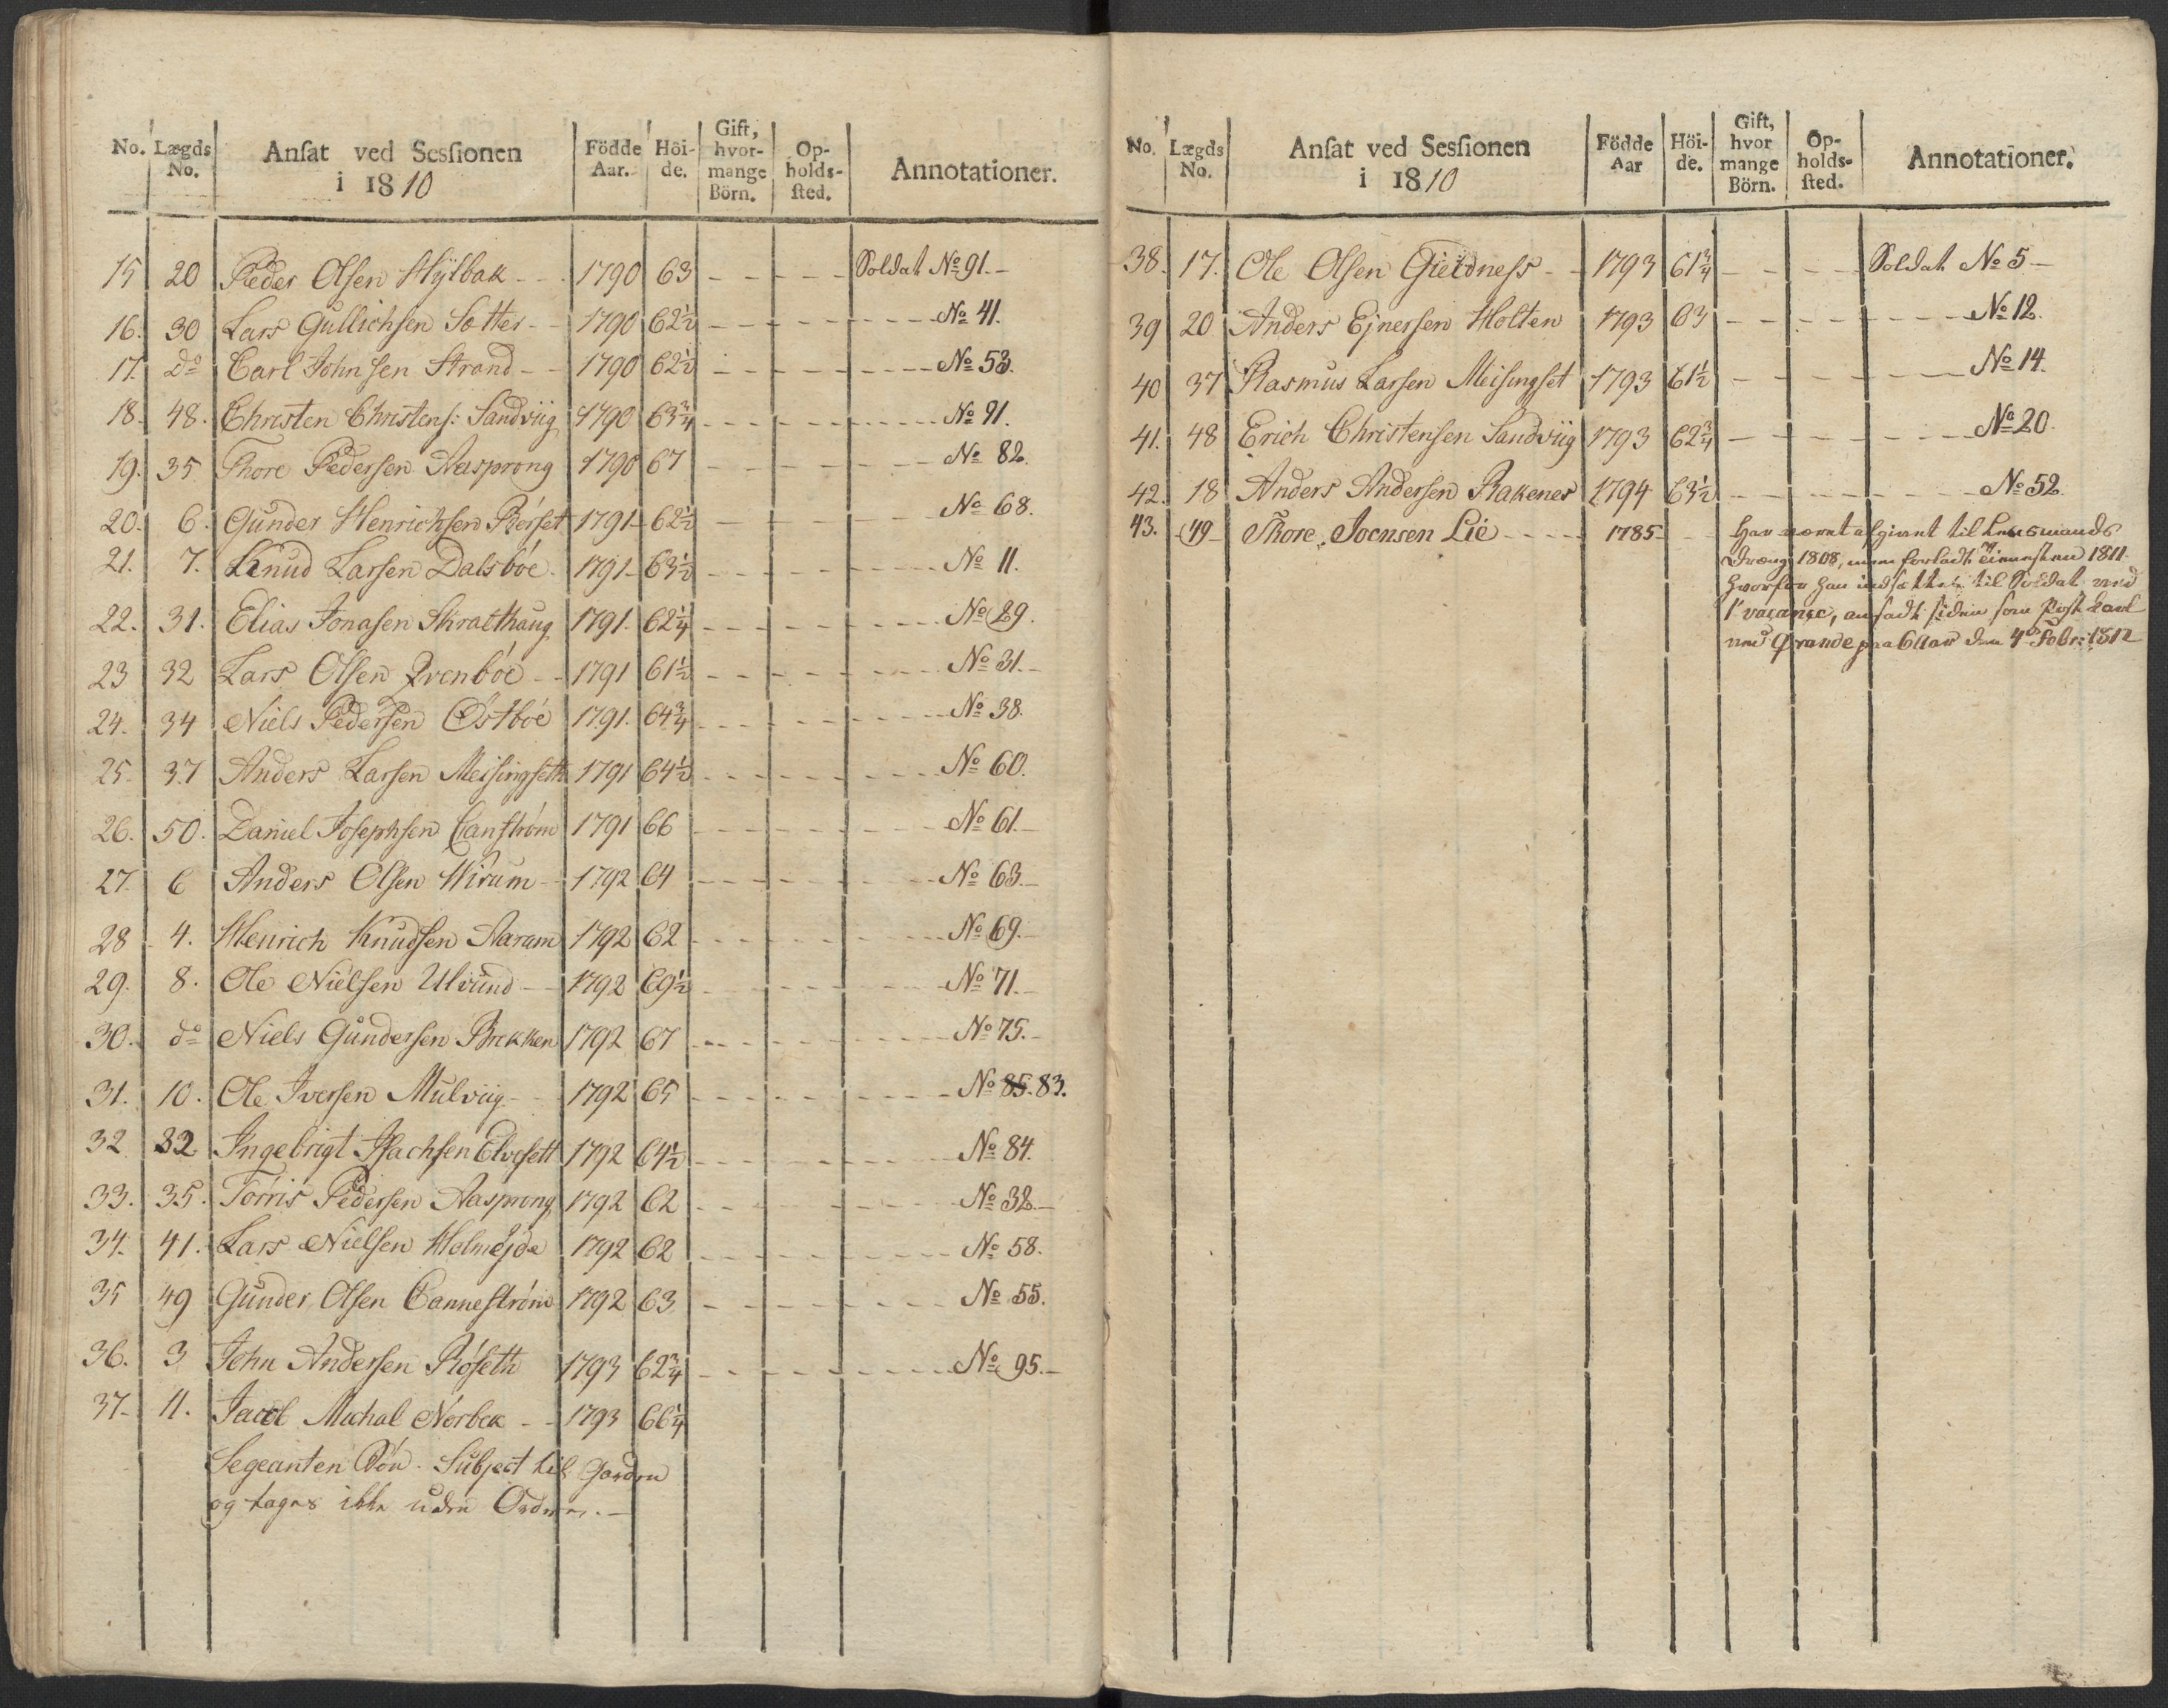 No. Lægds No. Ansat ved Sessionen i 1810 Födde Aar. Höi-de. Gift, hvor-mange Börn. Op-holds-sted. Annotationer.
15 20 Peder Olsen Hÿlbak - - - 1790 63 - - - - - Soldat No 91. -
16. 30 Lars Gullichsen Sætter - - 1790 62 1/2 - - - - - No 41.
17. do Carl Johnsen Strand - - 1790 62 1/2 - - - - - No 53.
18. 48. Christen Christens: Sandviig 1790 63 3/4 - - - - - No 21.
19. 35 Thore Pedersen Aasprong 1790 67 - - - - - No 82.
20. 6. Gunder Henrichsen Rørset 1791 - 62 1/2 - - - - - No 68.
21. 7. Knud Larsen Dalsbøe - 1791 - 63 1/2 - - - - - No 11.
22. 31. Elias Jonasen Skralthaug 1791. 62 1/4 - - - - - No 29.
23 32 Lars Olsen Qvenbøe - - 1791 61 1/2 - - - - - No 31. -
24. 34 Niels Pedersen Østbøe 1791. 64 3/4 - - - - - No 38.
25. 37 Anders Larsen Meisingseth 1791 64 1/2 - - - - - No 60.
26. 50. Daniel Josephsen Canstrøm 1791 66 - - - - - No 61. -
27. 6 Anders Olsen Wirum - - 1792 64 - - - - - No 63. -
28 4. Henrich Knudsen Aarum 1792 62 - - - - - No 69. -
29. 8. Ole Nielsen Ulvund - - 1792 69 1/2 - - - - - No 71. -
30. do Niels Gundersen Brekken 1792 67 - - - - - No 75. -
31. 10. Ole Iversen Mulviig - - 1792 65 - - - - - No 85. 83.
32 32 Ingebrigt Isachsen Elvesett 1792 64 1/2 - - - - - No 84.
33. 35. Torris Pedersen Aasprong 1792 62 - - - - - No 32. -
34. 41. Lars Nielsen Holmejde 1792 62 - - - - - No 58.
35 49 Gunder Olsen Cannestrøm 1792 63 - - - - - No 55.
36. 3 John Andersen Røseth 1793 62 3/4 - - - - - No 95. -
37. 11. Jacob Michal Norbek - - 1793 66 1/4
Segeanten Søn. Subject til Garden
og tages ikke uden Ordre. -
No. Lægds No. Ansat ved Sessionen i 1810 Födde Aar Höi-de. Gift, hvor mange Börn. Op-holds-sted. Annotationer.
38. 17. Ole Olsen Gieldness - - 1793 61 3/4 - - - - Soldat No 5 -
39 20 Anders Ejnersen Holten 1793 63 - - - - - No 12.
40 37 Rasmus Larsen Meisingset 1793 61 1/2 - - - - - No 14.
41. 48 Erich Christensen Sandviig 1793 62 3/4 - - - - - No 20.
42. 18 Anders Andersen Bakenes 1794 63 1/2 - - - - - No 52.
43. 49 - Thore Joensen Lie - - - - 1785 - - Har været afgivet til Lensmands
Dreng 1808, men forladt tienesten 1811
hvorfor han indsættes til Soldat ved
1ste vacance, ansadt siden som Post karl
ved Grande paa 6 Aar den 4de Febr: 1812